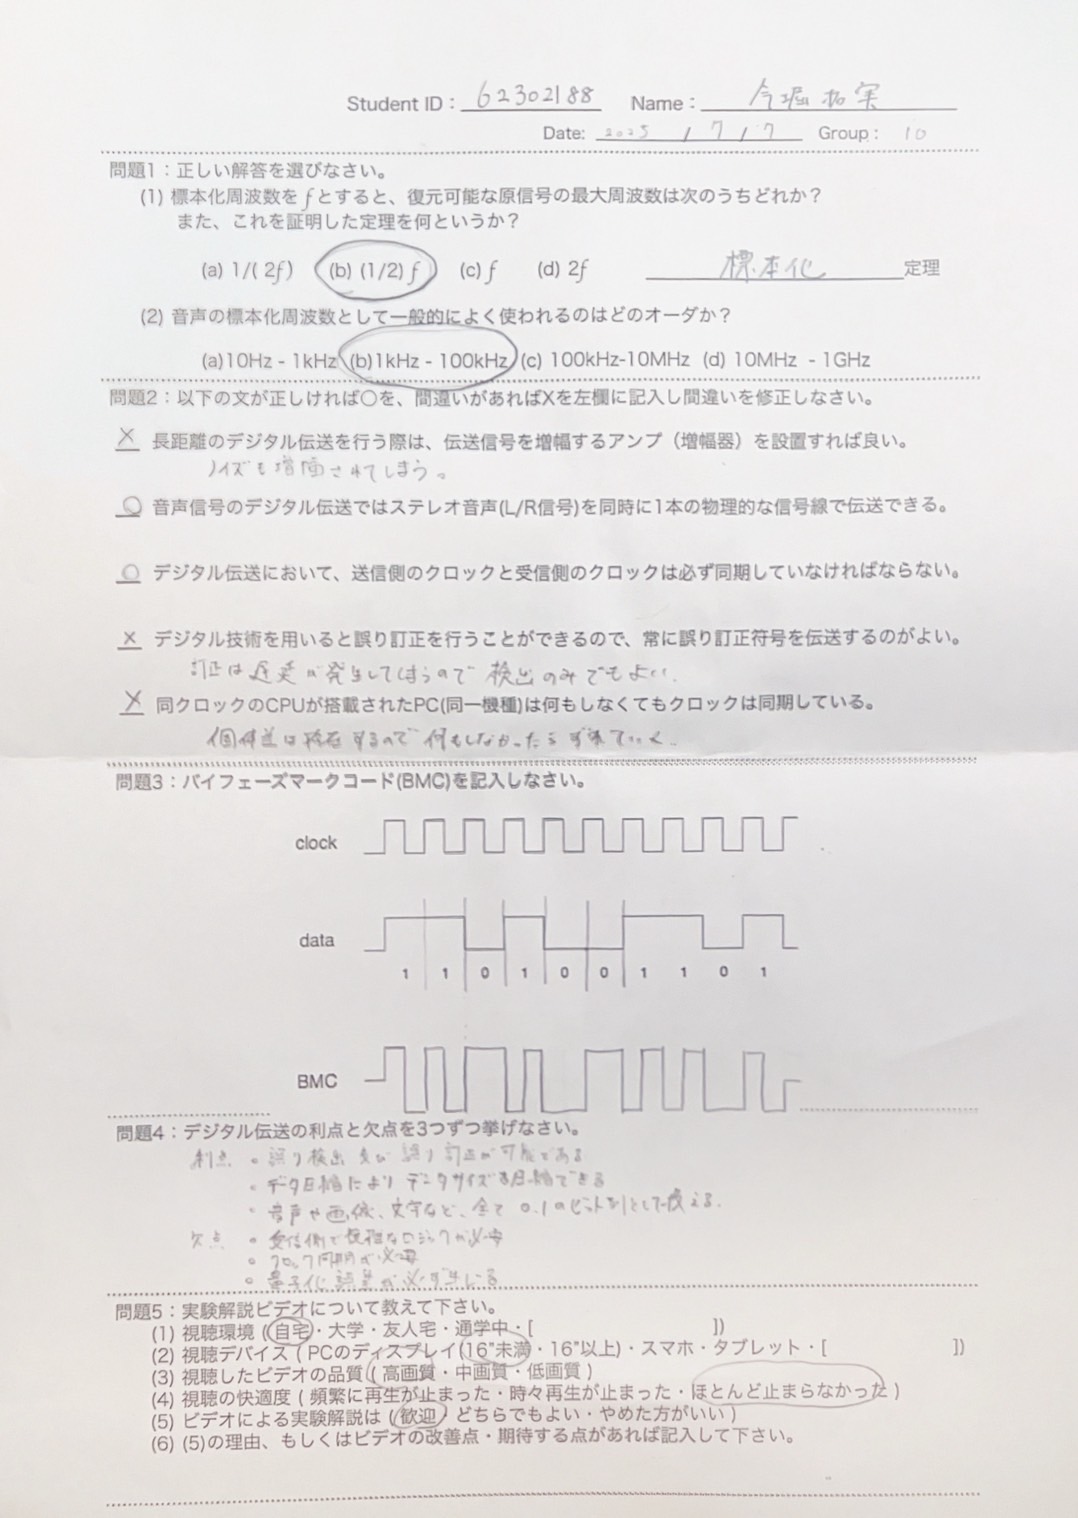 Student ID : 62302188 Name : 今堀拓実
Date: 2025 / 7 / 7 Group : 10
問題1：正しい解答を選びなさい。
(1) 標本化周波数を f とすると、復元可能な原信号の最大周波数は次のうちどれか？
また、これを証明した定理を何というか？
(a) 1/( 2f ) (b) (1/2) f (c) f (d) 2f 標本化 定理
(2) 音声の標本化周波数として一般的によく使われるのはどのオーダか？
(a)10Hz - 1kHz (b)1kHz - 100kHz (c) 100kHz-10MHz (d) 10MHz - 1GHz
問題2：以下の文が正しければ○を、間違いがあればXを左欄に記入し間違いを修正しなさい。
× 長距離のデジタル伝送を行う際は、伝送信号を増幅するアンプ（増幅器）を設置すれば良い。
ノイズも増幅されてしまう。
○ 音声信号のデジタル伝送ではステレオ音声(L/R信号)を同時に1本の物理的な信号線で伝送できる。
○ デジタル伝送において、送信側のクロックと受信側のクロックは必ず同期していなければならない。
× デジタル技術を用いると誤り訂正を行うことができるので、常に誤り訂正符号を伝送するのがよい。
訂正は遅延が発生してしまうので 検出のみでもよい.
× 同クロックのCPUが搭載されたPC(同一機種)は何もしなくてもクロックは同期している。
個体差は存在するので何もしなかったらずれていく.
問題3：バイフェーズマークコード(BMC)を記入しなさい。
clock
data
1 1 0 1 0 0 1 1 0 1
BMC
問題4：デジタル伝送の利点と欠点を3つずつ挙げなさい。
利点 ・誤り検出 及び 誤り訂正が可能である
・データ圧縮により データサイズを圧縮できる
・音声や画像、文字など、全て 0.1のビット列として扱える.
欠点 ・受信側で複雑なロジックが必要
・クロック同期が必要
・量子化誤差が必ず生じる
問題5：実験解説ビデオについて教えて下さい。
(1) 視聴環境 (自宅・大学・友人宅・通学中・[ ])
(2) 視聴デバイス ( PCのディスプレイ(16"未満・16"以上)・スマホ・タブレット・[ ])
(3) 視聴したビデオの品質 ( 高画質・中画質・低画質 )
(4) 視聴の快適度 ( 頻繁に再生が止まった・時々再生が止まった・ほとんど止まらなかった )
(5) ビデオによる実験解説は (歓迎・どちらでもよい・やめた方がいい )
(6) (5)の理由、もしくはビデオの改善点・期待する点があれば記入して下さい。